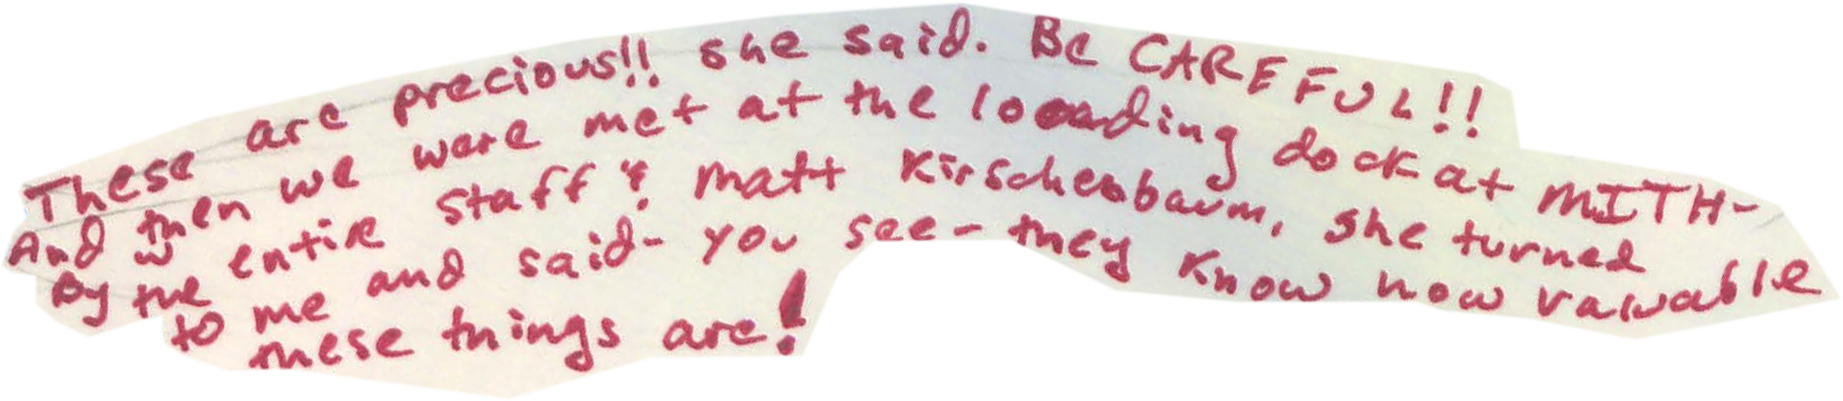 These are precious!! she said. Be CAREFUL!!
And then we were met at the loading dock at MITH-
by the entire staff & Matt Kirschenbaum, she turned
to me and said- you see- they know how valuable
these things are!